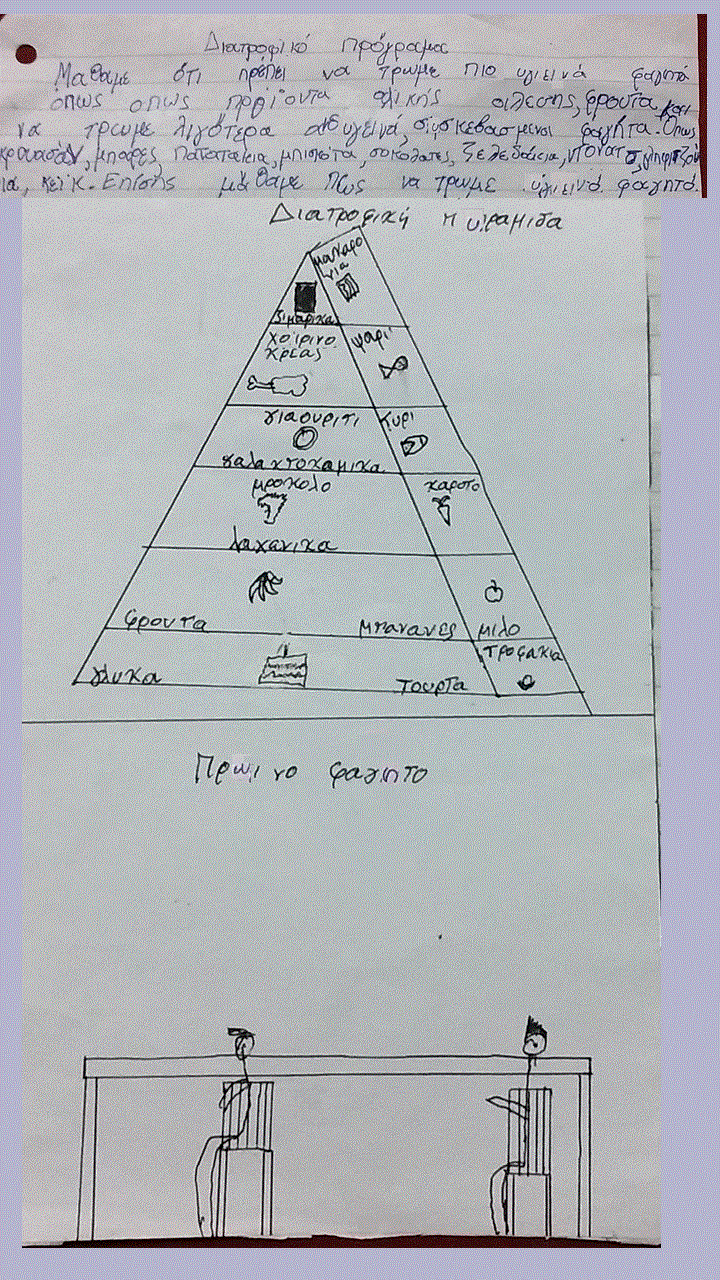 Διατροφικό πρόγραμα
Μάθαμε ότι πρέπει να τρωμε πιο υγιεινά φαγητά
όπως οπως προϊοντα ολικής αλεσης, φρουτα και
να τρωμε λιγότερα ανθυγεινά, συσκεβασμενα φαγητα. Όπως
κρουασάν, μπαρες, πατατακια, μπισκότα, σοκολατες, ζελεδακια, ντονατσ,
Επίσης μάθαμε πως να τρωμε υγιεινά φαγητά.
Διατροφική πυραμιδα
μακαρο
νια
ζιμαρικα
χοιρινο
κρεας
ψαρι
γιαουρτι
τυρι
γαλακτοκαμικα
μροκολο
καροτο
λαχανικα
φρουτα μπανανες μιλο
τροφακια
γλυκα τουρτα
Πρωινο φαγητο